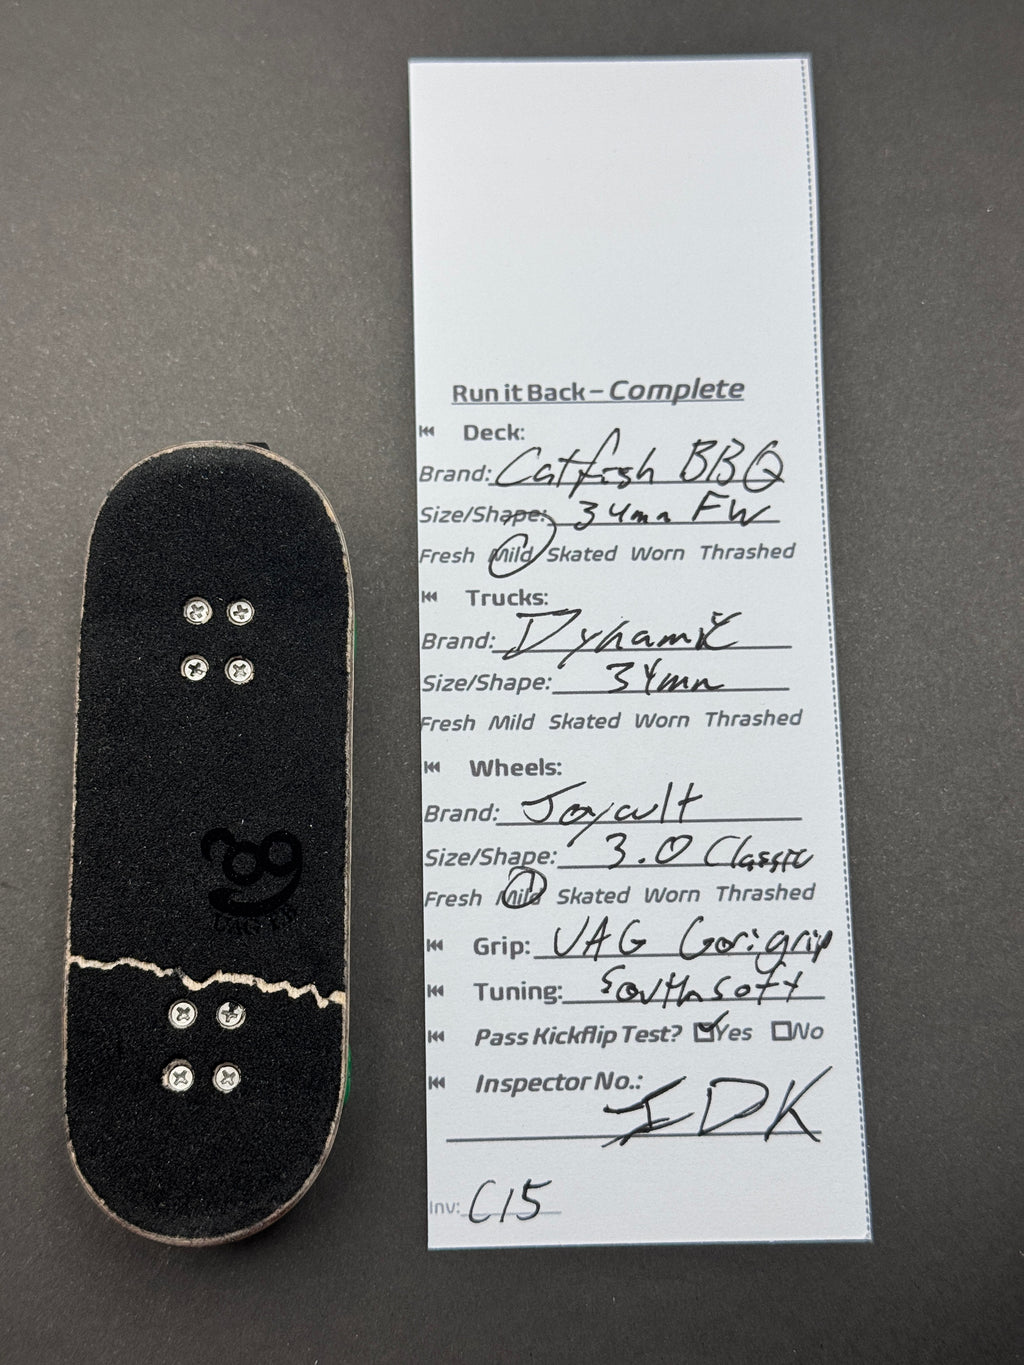 Run it Back – Complete
Deck:
Brand: Catfish BBQ
Size/Shape: 34mm FW
Fresh Mild Skated Worn Thrashed
Trucks:
Brand: Dynamic
Size/Shape: 34mm
Fresh Mild Skated Worn Thrashed
Wheels:
Brand: Joycult
Size/Shape: 3.0 Classic
Fresh Mild Skated Worn Thrashed
Grip: VAG Gorigrip
Tuning: South soft
Pass Kickflip Test? Yes No
Inspector No.:
IDK
Inv: C15